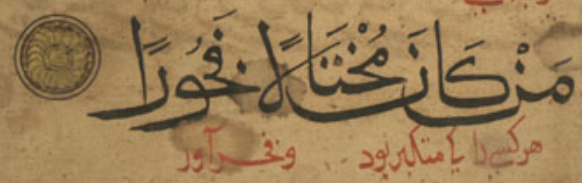 مَنْ كَانَ مُخْتَالًا فَخُورًا
هر کسی را یا متکبر بود وفخر آور